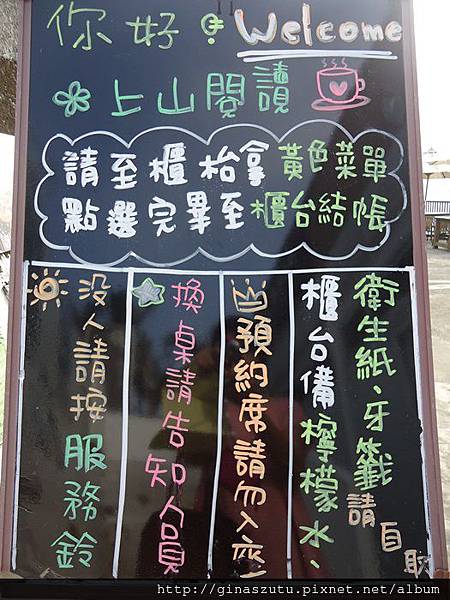 你好! Welcome
上山閱讀
請至櫃枱拿黃色菜單
點選完畢至櫃台結帳
衛生紙、牙籤
櫃台備檸檬水、
請自取
預約席請勿入座
換桌請告知人員
沒人請按服務鈴
http://ginaszutu.pixnet.net/album